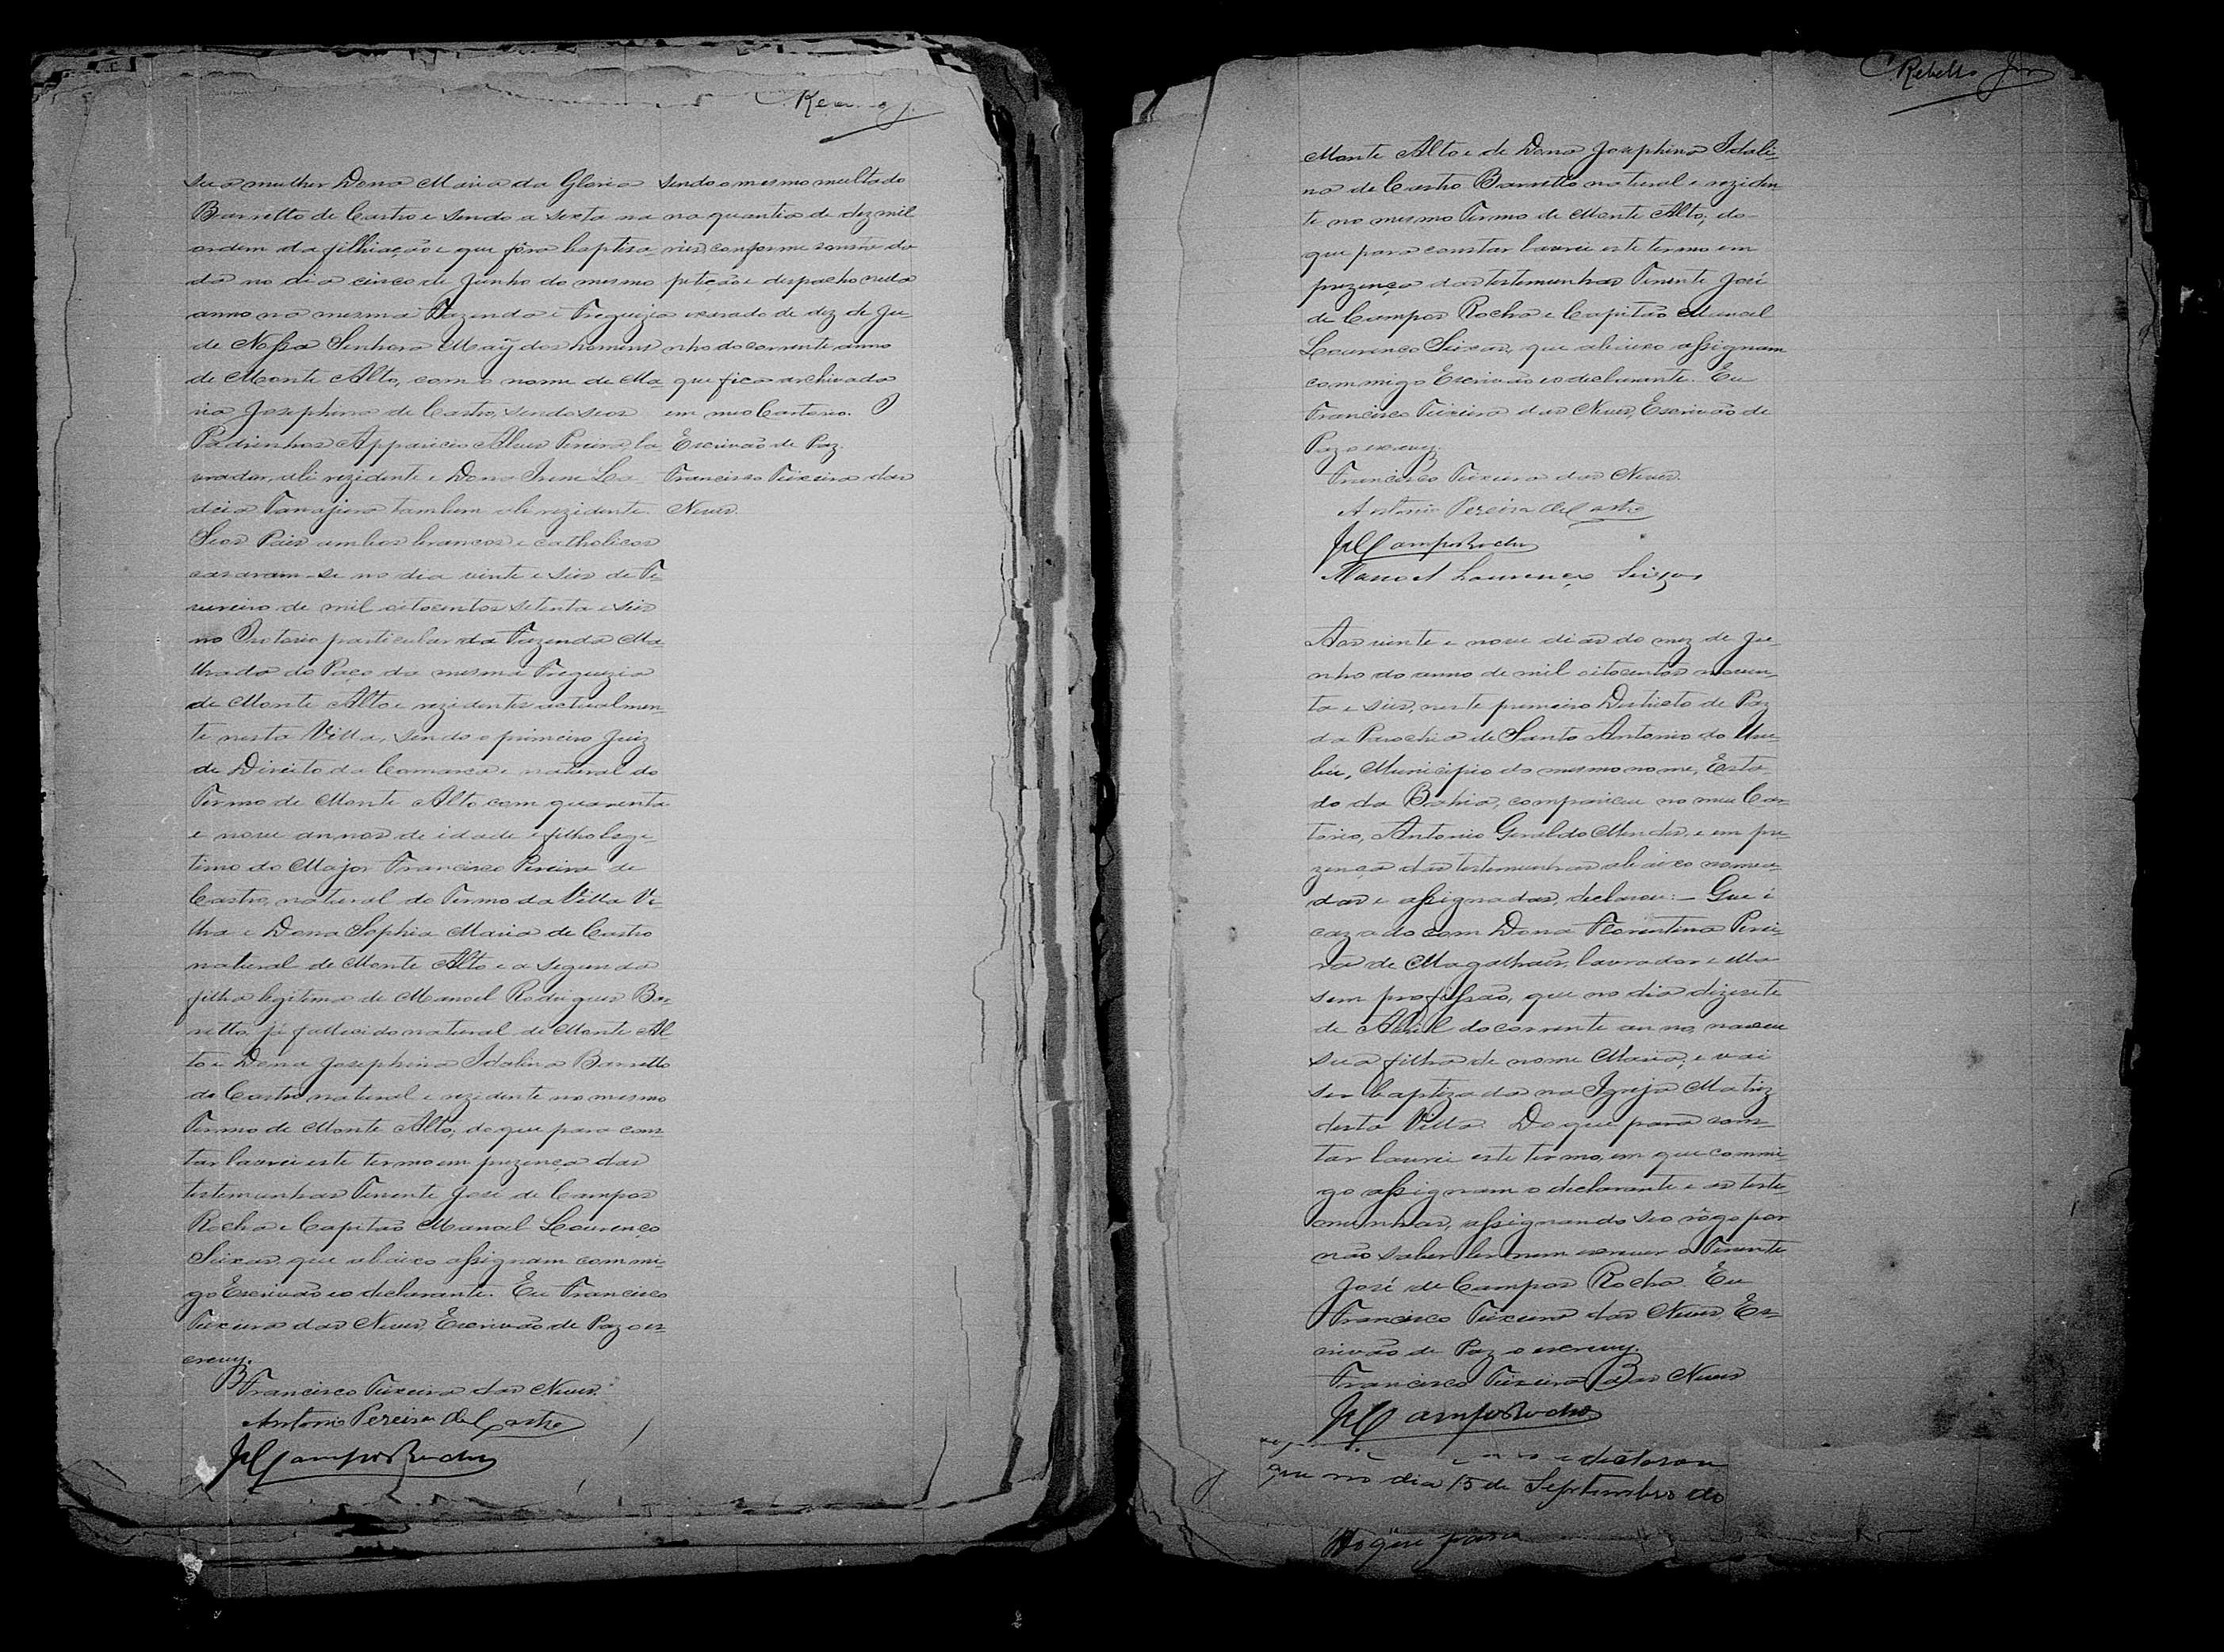 sua mulher Dona Maria da Gloria
Barretto de Castro e sendo a sexta na
ordem da filhiação e que fôra baptisa-
da no dia cinco de Junho do mesmo
anno na mesma Fazenda e Freguezia
de Nossa Senhora Maÿ dos homens
de Monte Alto, com o nome de Ma-
ria Josephina de Castro, sendo seos
Padrinhos Apparicio Alves Pereira la-
vrador, ali rezidente e Dona
tambem ali rezidente.
Seos Pais ambos brancos e catholicos
casaram-se no dia vinte e seis de Fe-
vereiro de mil oitocentos setenta e seis
no Oratorio particular da Fazenda Ma-
lhada do Paço da mesma Freguezia
de Monte Alto e rezidentes actualmen-
te nesta Villa, sendo o primeiro Juiz
de Direito da Comarca e natural do
Termo de Monte Alto com quarenta
e nove annos de idade e filho legi-
timo do Major Francisco Pereira de
Castro, natural do Termo da Villa Ve-
lha e Dona Sophia Maria de Castro
natural de Monte Alto e a segunda
filha legitima de Manoel Rodrigues Bar-
retto, já fallecido natural de Monte Al-
to e Dona Josephina Idalina Barretto
de Castro natural e rezidente no mesmo
Termo de Monte Alto; do que para cons-
tar lavrei este termo em prezença das
testemunhas Tenente José de Campos
Rocha e Capitão Manoel Lourenço
Seixas, que abaixo assignam commi-
go Escrivão e o declarante. Eu Francisco
Teixeira das Neves, Escrivão de Paz o es-
crevy.
Francisco Teixeira das Neves.
Antonio Pereira de Castro
JdCampos Rocha
sendo o mesmo multado
na quantia de dez mil
reis, conforme consta da
petição e despacho nella
exarado de dez de Ju-
nho do corrente anno
que fica archivada
em meo Cartorio. O
Escrivão de Paz.
Francisco Teixeira das
Neves.
C. Rebello Jor
Monte Alto e de Dona Josephina Idali-
na de Castro Barretto natural e reziden-
te no mesmo Termo de Monte Alto; do
que para constar lavrei este termo em
prezença das testemunhas Tenente José
de Campos Rocha e Capitão Manoel
Lourenço Seixas, que abaixo assignam
commigo Escrivão e o declarante. Eu
Francisco Teixeira das Neves, Escrivão de
Paz o escrevy.
Francisco Teixeira das Neves.
Antonio Pereira de Castro
JdCampos Rocha
Manoel Lourenço Seixas
Aos vinte e nove dias do mez de Ju-
nho do anno de mil oitocentos noven-
ta e seis, neste primeiro Districto de Paz
da Parochia de Santo Antonio do Uru-
bú, Municipio do mesmo nome, Esta-
do da Bahia, compareceu no meu Car-
torio, Antonio Geraldo Mendes, e em pre-
zença das testemunhas abaixo nomea-
das e assignadas, declarou: - Que é
cazado com Dona Florentina Perei-
ra de Magalhães, lavrador e ella
sem profissão, que no dia dizesete
de Abril do corrente anno, nasceu
sua filha de nome Maria, e vai
ser baptizada na Igreja Matriz
desta Villa. Do que para cons-
tar lavrei este termo, em que commi-
go assignam o declarante e as teste-
munhas, assignando seo rôgo por
não saber ler nem escrever o Tenente
José de Campos Rocha. Eu
Francisco Teixeira das Neves, Es-
crivão de Paz o escrevy.
Francisco Teixeira das Neves
JdCampos Rocha
e declarou
que no dia 15 de Septembro do
Do que para